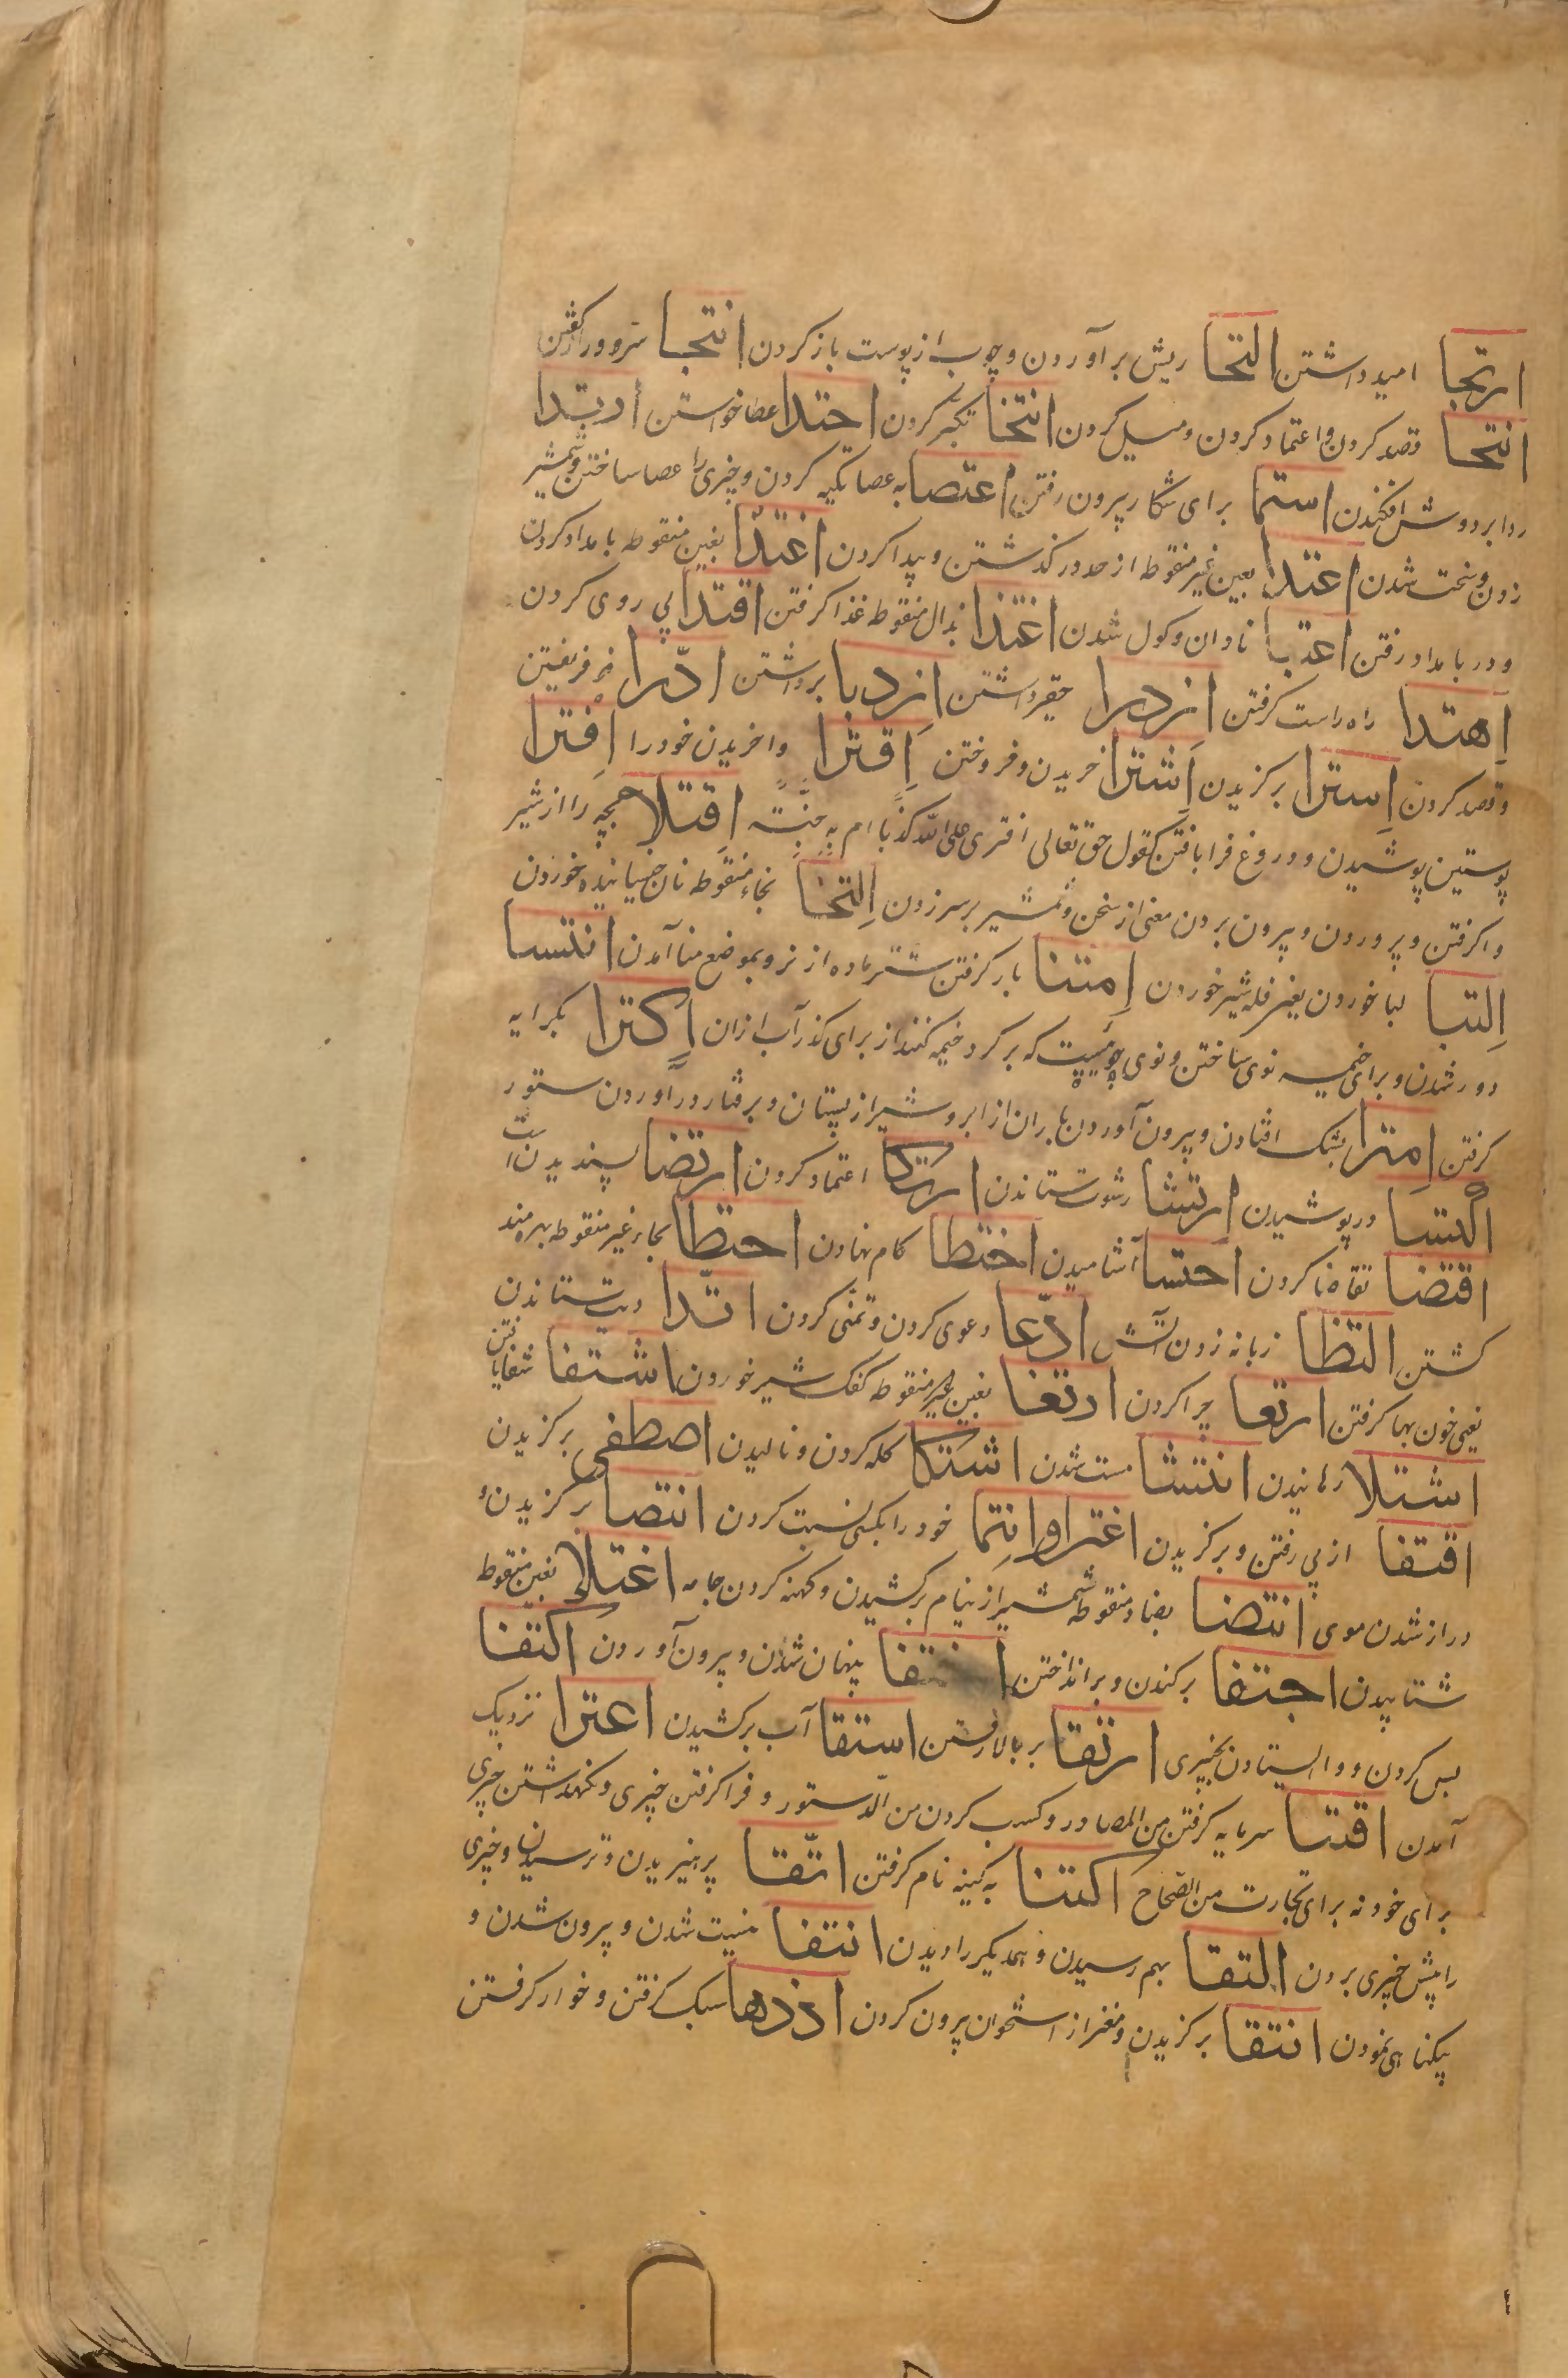 ارتجا امید داشتن التحا ریش برآوردن و چوب از پوست باز کردن انتجا
انتحا قصد کردن و اعتماد کردن و میل کردن انتخا تکبر کردن اجتدا عطا خواستن ارتدا
ردا بر دوش افکندن استما برای شکار بیرون رفتن اعتصا به عصا تکیه کردن و چیزی را عصا ساختن و شمشیر
زدن و سخت شدن اعتدا بعین غیر منقوطه از حد در گذشتن و پیدا کردن اغتدا بغین منقوطه بامداد کردن
و در بامداد رفتن اعتبا نادان و کول شدن اغتذا بذال منقوطه غذا گرفتن اقتدا پی روی کردن
اِهتدا راه راست گرفتن ازدرا حقیر داشتن ازدبا برداشتن ادّرا فریفتن
و قصد کردن اِستِرا برگزیدن اِشترا خریدن و فروختن اِقترا واخریدن خود را اِفترا
پوستین پوشیدن و دروغ فرا بافتن کقول حق تعالی افتری علی الله کذبًا ام بِهِ جِنَّةٌ اِفتلا بچه را از شیر
واگرفتن و پروردن و بیرون بردن معنی از سخن و شمشیر بر سر زدن اِلتخا بخاء منقوطه نان خیسانیده خوردن
اِلتبا لبا خوردن یعنی فله شیر خوردن اِمتنا بار گرفتن شتر ماده از نر و بموضع منا آمدن انتسا
دور شدن و برای خیمه نوی ساختن و نوی جوئیست که بر گرد خیمه کنند از برای گذر آب ازان اِکترا بکرایه
گرفتن اِمترا بشک افتادن و بیرون آوردن باران از ابر و شیر از پستان و برفتار درآوردن ستور
اکتسا در پوشیدن ارتشا رشوت ستاندن ارتکا اعتماد کردن ارتضا پسندیدن
اقتضا تقاضا کردن احتسا آشامیدن اختطا کام نهادن احتظا بحاء غیر منقوطه بهره مند
گشتن التظا زبانه زدن آتش ادّعا دعوی کردن و تمنّی کردن اتّدا دیت ستاندن
یعنی خون بها گرفتن ارتعا چرا کردن ارتغا بغین منقوطه کفک شیر خوردن اشتفا شفا یافتن
اشتلا رهانیدن انتشا مست شدن اشتکا کله کردن و نالیدن اصطفی برگزیدن
اقتفا از پی رفتن و برگزیدن اغترا وانتما خود را بکسی نسبت کردن انتصا برگزیدن و
دراز شدن موی انتضا بضاد منقوطه شمشیر از نیام برکشیدن و کهنه کردن جامه اغتلا بغین منقوطه
شتابیدن اجتفا برکندن و برانداختن اختفا پنهان شدن و بیرون آوردن اکتفا
بس کردن و وا ایستادن بچیزی ارتقا بر بالا رفتن استقا آب برکشیدن اعترا نزدیک
آمدن اقتنا سرمایه گرفتن من المصادر و کسب کردن من الدستور و فرا گرفتن چیزی و نگهداشتن چیزی
برای خود نه برای تجارت من الصّحاح اکتنا به کنیه نام گرفتن اتّقا پرهیزیدن و ترسیدن و چیزی
را پیش چیزی بردن التقا بهم رسیدن و همدیگر را دیدن انتفا نیست شدن و بیرون شدن و
بیگناهی نمودن انتقا برگزیدن و مغز از استخوان بیرون کردن ازدها سبک گرفتن و خوار گرفتن